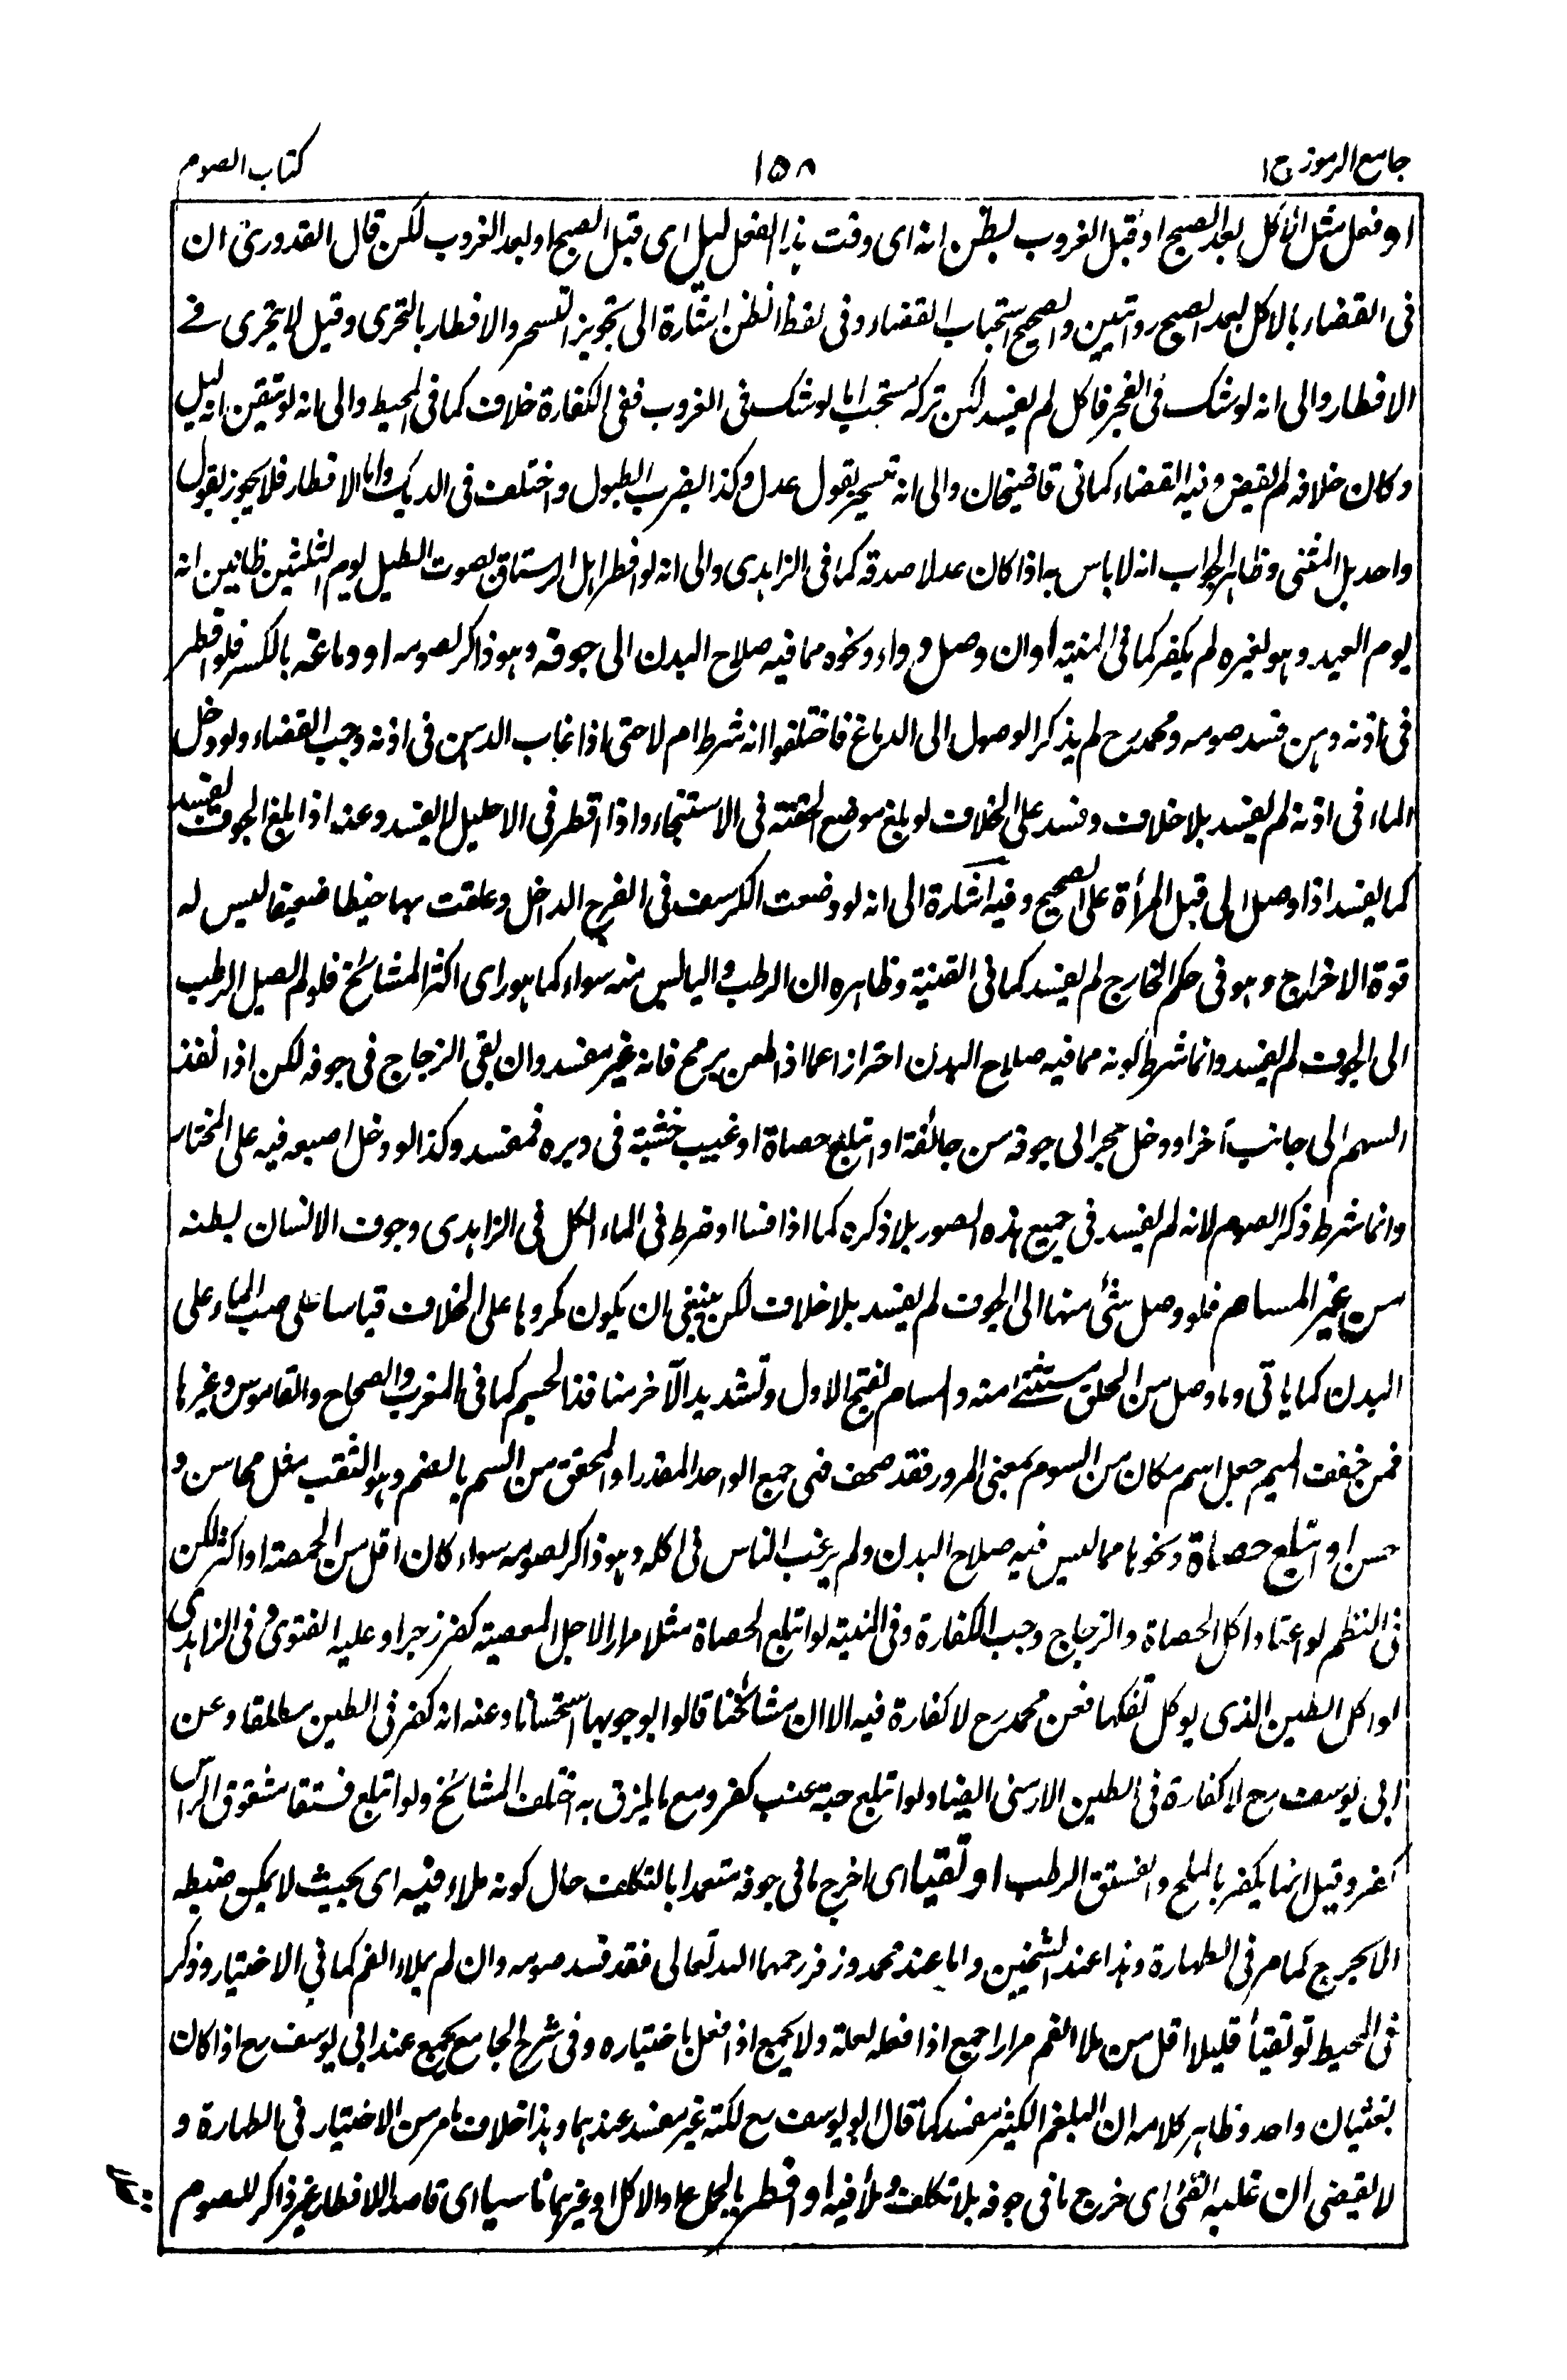 جامع الرموز ج١
١٥٨
كتاب الصوم
او فعل مثل الأكل بعد الصبح او قبل الغروب لظن انه اى وقت هذا الفعل ليل اى قبل الصبح او بعد الغروب لكن قال القدورى ان
فى القضاء بالاكل بعد الصبح روايتين والصحيح استحباب القضاء وفى لفظ الظن اشارة الى تجويز التسحر والافطار بالتحرى وقيل لا يتحرى فى
الافطار والى انه لو شك فى الفجر فاكل لم يفسد لكن تركه مستحب اما لو شك فى الغروب ففى الكفارة خلاف كما فى المحيط والى انه لو تيقن انه ليل
وكان خلافه لم يقض وفيه القضاء كما فى قاضيخان والى انه تسحر بقول عدل وكذا بضرب الطبول واختلف فى الديك واما الافطار فلا يجوز بقول
واحد بل المثنى وظاهر الجواب انه لا باس به اذا كان عدلا صدقه كما فى الزاهدى والى انه لو افطر اهل الرستاق بصوت الطبل يوم الثلثين ظانين انه
يوم العيد وهو لغيره لم يكفر كما فى المنية او ان وصل دواء ونحوه مما فيه صلاح البدن الى جوفه وهو ذاكر لصومه او دماغه بالكسر فلو اقطر
فى اذنه دهن فسد صومه ومحمد رح لم يذكر الوصول الى الدماغ فاختلفوا انه شرط ام لا حتى اذا غاب الدهن فى اذنه وجب القضاء ولو دخل
الماء فى اذنه لم يفسد بلا خلاف وفسد على الخلاف لو بلغ موضع الحقنة فى الاستنجاء واذا اقطر فى الاحليل لا يفسد وعنه اذا بلغ الجوف يفسد
كما يفسد اذا وصل الى قبل المرأة على الصحيح وفيه اشارة الى انه لو وضعت الكرسف فى الفرج الداخل وعلقت بها خيطا ضعيفا ليس له
قوة الاخراج وهو فى حكم الخارج لم يفسد كما فى القنية وظاهره ان الرطب واليابس منه سواء كما هو راى اكثر المشائخ فلو لم يصل الرطب
الى الجوف لم يفسد وانما شرط كونه مما فيه صلاح البدن احترازا عما اذا طعن برمح فانه غير مفسد وان بقى الزجاج فى جوفه لكن اذا نفذ
السهم الى جانب آخر او دخل حجر الى جوفه من جائفة او ابتلع حصاة او غيب خشبة فى دبره فمفسد وكذا لو دخل اصبعه فيه على المختار
وانما شرط ذكر الصوم لانه لم يفسد فى جميع هذه الصور بلا ذكره كما اذا فسا او ضرط فى الماء الكل فى الزاهدى وجوف الانسان بطنه
من غير المسام فلو وصل شئ منها الى الجوف لم يفسد بلا خلاف لكن ينبغى ان يكون مكروها على الخلاف قياسا على صب الماء على
البدن كما ياتى وما وصل من الحلق مستثنى منه والمسام بفتح الاول وتشديد الآخر منافذ الجسم كما فى المغرب والصحاح والقاموس وغيرها
فمن خفف الميم جعل اسم مكان من السوم بمعنى المرور فقد صحف فهى جمع الواحد المقدر او المحقق من السم بالضم وهو الثقب مثل محاسن و
حسن او ابتلع حصاة ونحوها مما ليس فيه صلاح البدن ولم يرغب الناس فى اكله وهو ذاكر لصومه سواء كان اقل من الحمصة او اكثر لكن
فى النظم لو اعتاد اكل الحصاة والزجاج وجب الكفارة وفى المنية لو ابتلع الحصاة مثلا مرارا لاجل المعصية كفر زجرا وعليه الفتوى وفى الزاهدى
لو اكل الطين الذى يوكل تفكها فعن محمد رح لا كفارة فيه الا ان مشائخنا قالوا بوجوبها استحسانا وعنه انه كفر فى الطين مطلقا وعن
ابى يوسف رح لا كفارة فى الطين الارمنى ايضا ولو ابتلع حبة عنب كفر ومع ما يلزق به اختلف المشائخ ولو ابتلع فستقا مشقوق الراس
كفر وقيل انما يكفر بالملح والفستق الرطب او تقيأ اى اخرج ما فى جوفه متعمدا بالتكلف حال كونه ملاء فيه اى بحيث لا يمكن ضبطه
الا بحرج كما مر فى الطهارة وهذا عند الشيخين واما عند محمد وزفر رحمهما الله تعالى فقد فسد صومه وان لم يملاء الفم كما فى الاختيار وذكر
فى المحيط لو تقيأ قليلا اقل من ملا الفم مرارا جمع اذا فعله لعلة ولا يجمع اذا فعل باختياره وفى شرح الجامع يجمع عند ابى يوسف رح اذا كان
بغثيان واحد وظاهر كلامه ان البلغم الكثير مفسد كما قال ابو يوسف رح لكنه غير مفسد عندهما وهذا خلاف ما مر من الاختيار فى الطهارة و
لا يقضى ان غلبه القئ اى خرج ما فى جوفه بلا تكلف وملأ فيه او افطر بالجماع او الاكل او غيرهما ناسيا اى قاصدا للافطار غير ذاكر للصوم